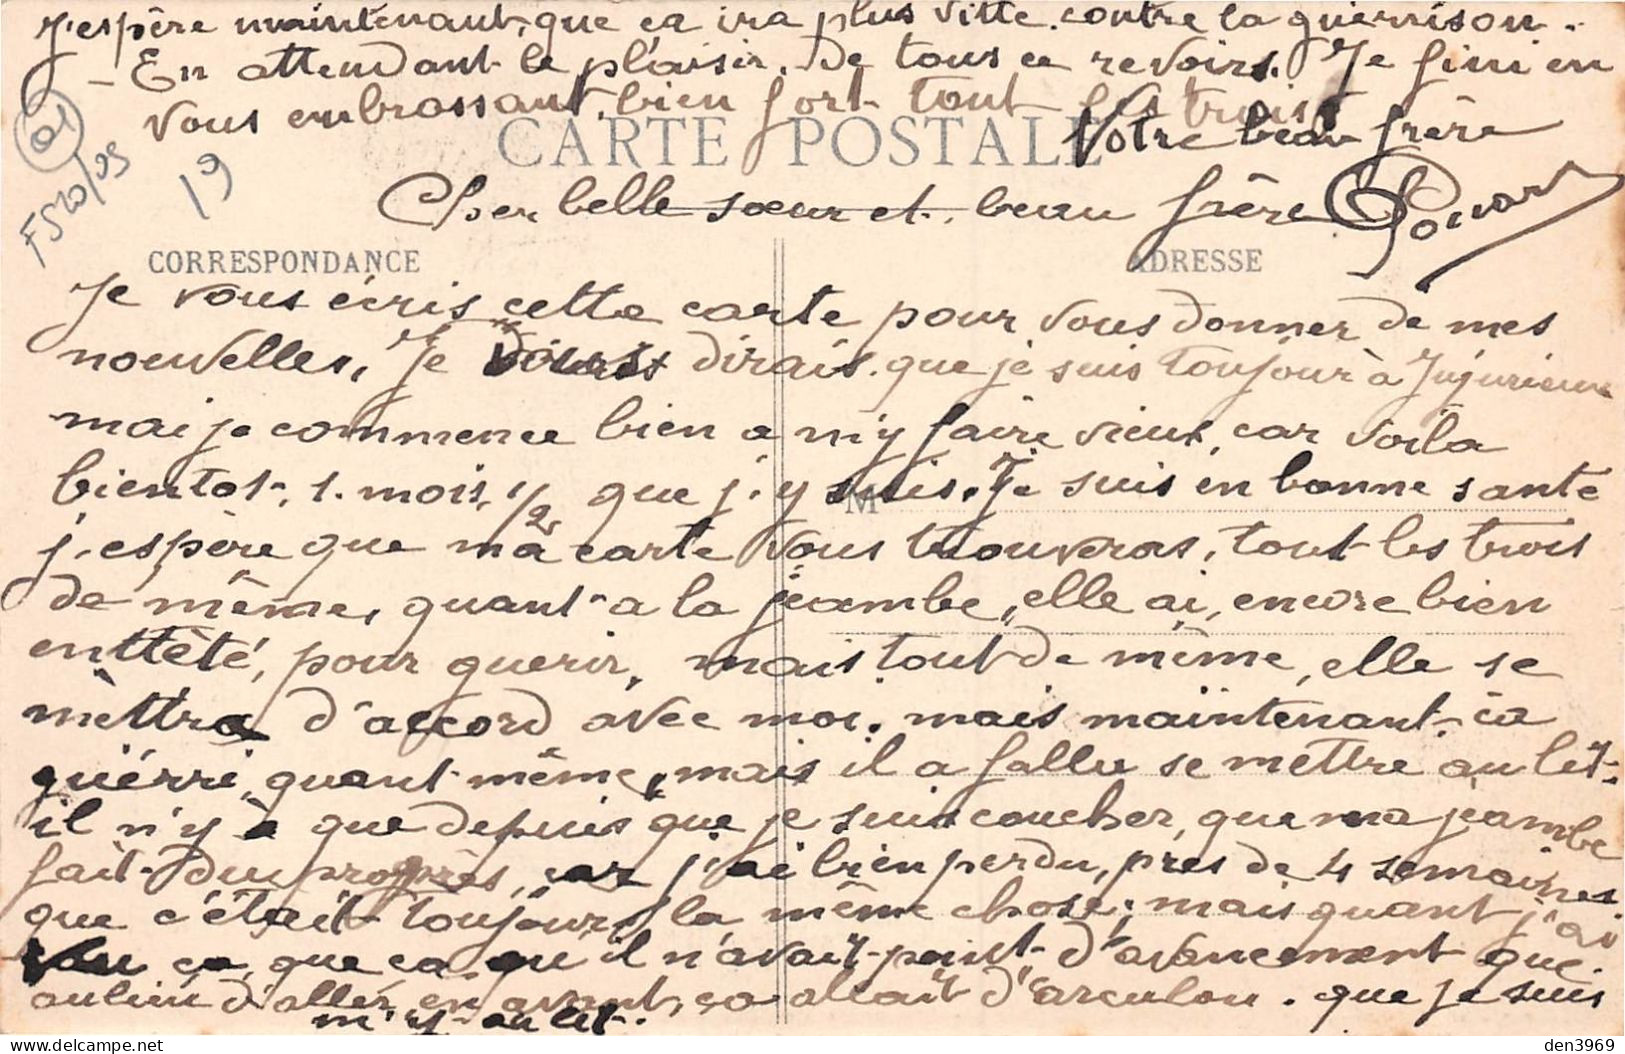 J'espère maintenant, que ca ira plus vitte contre la guerrison.
- En attendant le plaisir. De tous ce revoirs. Je fini en
vous enbrassant, bien fort tout les trois
CARTE POSTALE
Votre beau frère
01
F520/25
19
Cher belle sœur et beau frère
CORRESPONDANCE
ADRESSE
Je vous écris cette carte pour vous donner de mes
nouvelles, Je dirais que je suis toujour à Jujurieux
mai je commence bien a m'y faire vieux, car voila
bientot 1. mois, 1/2 que j'y suis. Je suis en bonne sante
M
j'espère que ma carte vous trouveras, tout les trois
de même, quant a la jeambe, elle ai, encore bien
enttêté, pour guerir, mais tout de même, elle se
mèttra d'accord avec moi. mais maintenant ca
guérri, quant même, mais il a fallu se mettre au lit.
il n'y à que depuis que je suis coucher, que ma jeambe
fait du progrès, car j'ai bien perdu, près de 4 semaines
que c'était toujours la même chose, mais quant j'ai
vu ça, que ca, qu'il n'avait point d'avancement que
au lieu d'allér en avant, ça allait d'arculon. que je suis
m'y au lit.
den3969